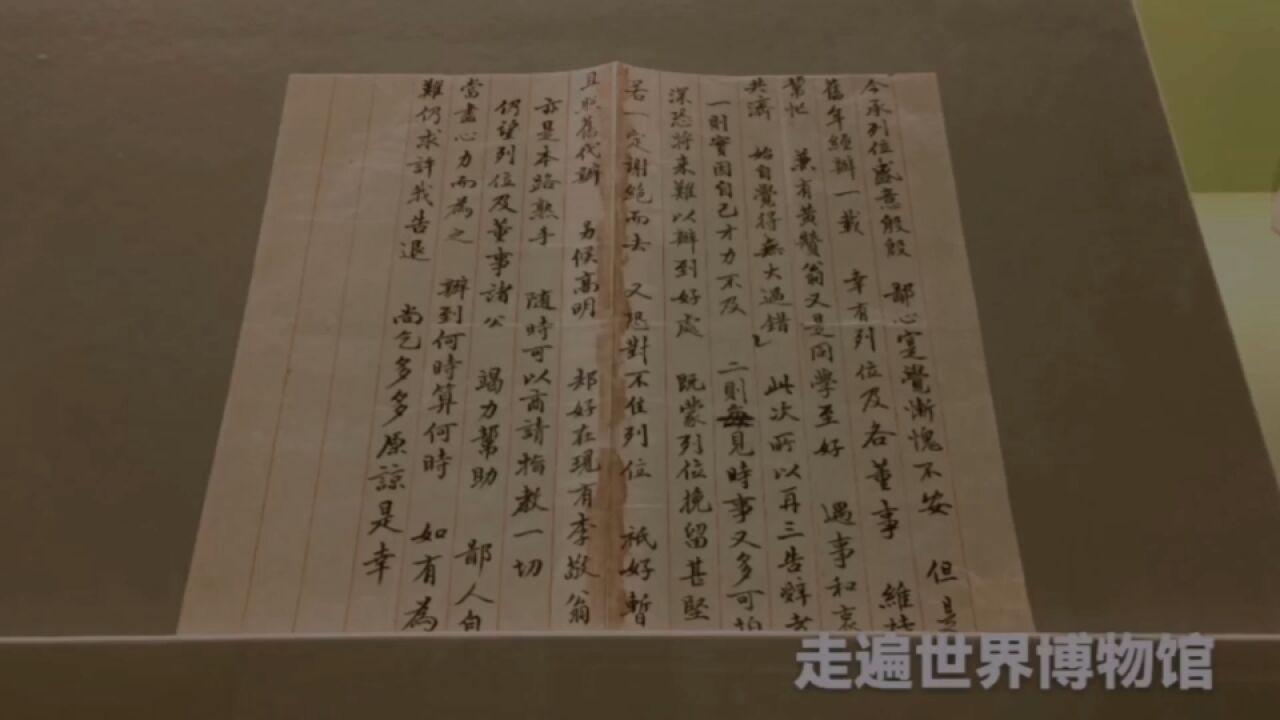 今承列位盛意殷殷 鄙心寔覺漸愧不安 但是
舊年經辦一載 幸有列位及各董事 維持
幫忙 兼有黃贊翁又是同學至好 遇事和衷
共濟 始自覺得無大過錯 此次所以再三告辭者
一則實因自己才力不及 二則每見時事又多可怕
深恐將來難以辦到好處 既蒙列位挽留甚堅
若一定謝絕而去 又恐對不住列位 祇好暫
且照舊代辦 另候高明 却好在現有李敬翁
亦是本路熟手 隨時可以商請指教一切
仍望列位及董事諸公 竭力幫助 鄙人自
當盡心力而為之 辦到何時算何時 如有為
難仍求許我告退 尚乞多多原諒是幸
走遍世界博物馆